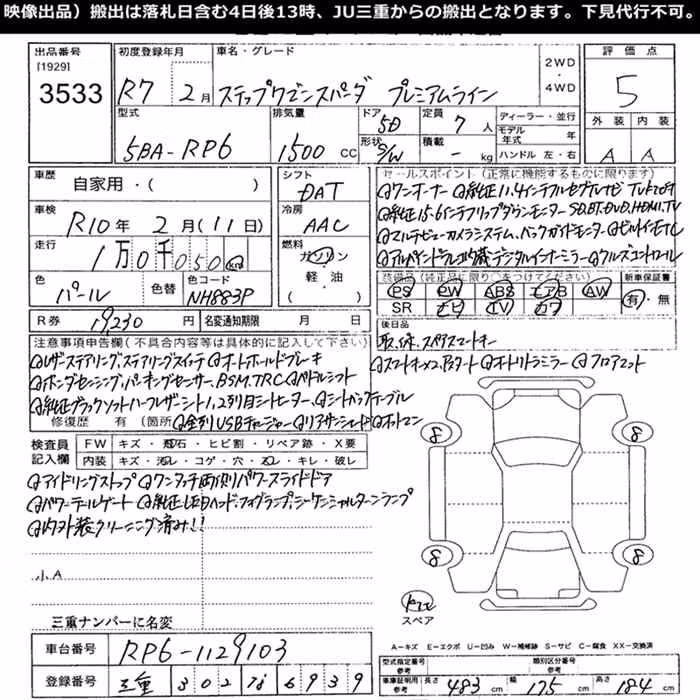 映像出品）搬出は落札日含む4日後13時、JU三重からの搬出となります。下見代行不可。
出品番号 初度登録年月 車名・グレード 2WD・4WD 評価点
[1929]
3533 R7 2月 ステップワゴンスパーダ プレミアムライン 5
型式 排気量 ドア 5D 定員 7人 ディーラー・並行 外装 内装
5BA-RP6 1500 CC 形状 S/W 積載 - kg モデル年式 年 A A
ハンドル 左・右
車歴 自家用・( ) シフト DAT セールスポイント (正常に機能するものに限ります)
車検 R10年 2月(11日) 冷房 AAC
@ワンオーナー @純正11.4インテフルセグTVナビ
@純正15.6インチリップダウンモニター SD.BT.DVD.HDMI.TV
走行 1万0千050km 燃料 ガソリン・軽油( )
@マルチビューカメラシステム、バックガイドモニター @ビルトインETC
@アルパインドラレコ内蔵デジタルインナーミラー @クルーズコントロール
色 パール 色替 色コード NH883P
装備品 (純正品に限り○をつけてください) 新車保証書
PS PW ABS エアB AW 有・無
SR ナビ TV カワ
R券 19230円 名変通知期限 月 日
後日品
取、保、スペアスマートキー
注意事項申告欄(不具合内容等は具体的に記入して下さい)
@レザーステアリング、ステアリングスイッチ @オートホールドブレーキ @スマートキー×2、Pスタート @オートリトラミラー @フロアマット
@ホンダセンシング、パーキングセンサー、BSM、TRC @パドルシフト
@純正ブラックソフトハーフレザーシート1、2列目シートヒーター @シートバックテーブル
修復歴 有(箇所 @全列USBチャージャー @リアサンシェード @オットマン
検査員記入欄 FW キズ・飛石・ヒビ割・リペア跡・X要
内装 キズ・汚レ・コゲ・穴・ヌレ・キレ・破レ
@アイドリングストップ @ワンタッチ両側パワースライドドア
@パワーテールゲート @純正LEDヘッド、フォグランプ、シーケンシャルターンランプ
@内外装クリーニング済み!!
8 8
8 8
小A
スペア
三重ナンバーに名変
A=キズ E=エクボ U=凹み W=補修跡 S=サビ C=腐食 XX=交換済
車台番号 RP6-1129103
型式指定番号 参考 類別区分番号 参考
登録番号 三重 302 6939
車庫証明用 参考 長さ 483cm 幅 175cm 高さ 184cm